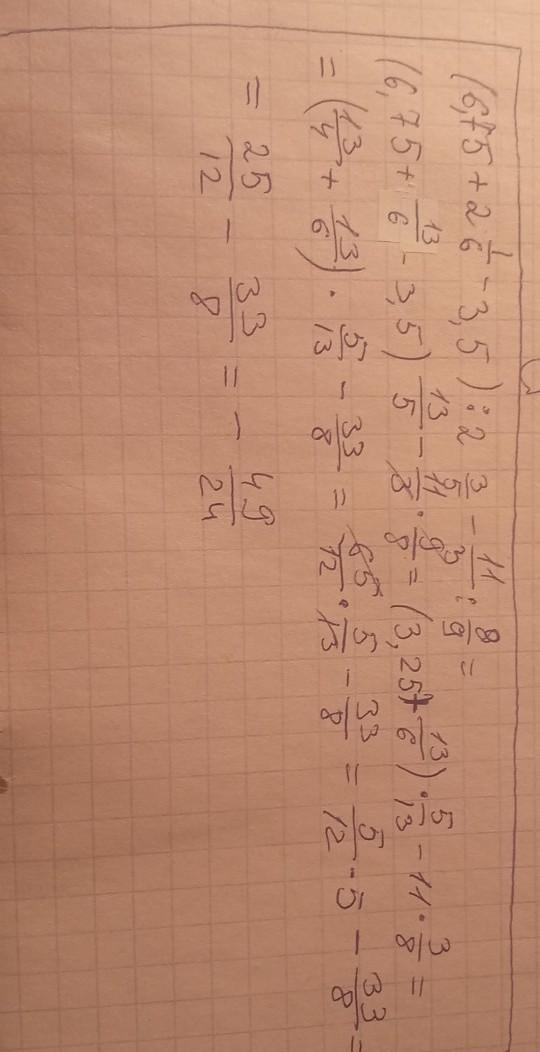 (6,75 + 2 1/6 - 3,5) : 2 3/5 - 11/3 : 8/9 =
(6,75 + 13/6 - 3,5) 13/5 - 11/3 · 9/8 = (3,25 + 13/6) · 5/13 - 11 · 3/8 =
= (13/4 + 13/6) · 5/13 - 33/8 = 65/12 · 5/13 - 33/8 = 5/12 · 5 - 33/8 =
= 25/12 - 33/8 = - 49/24